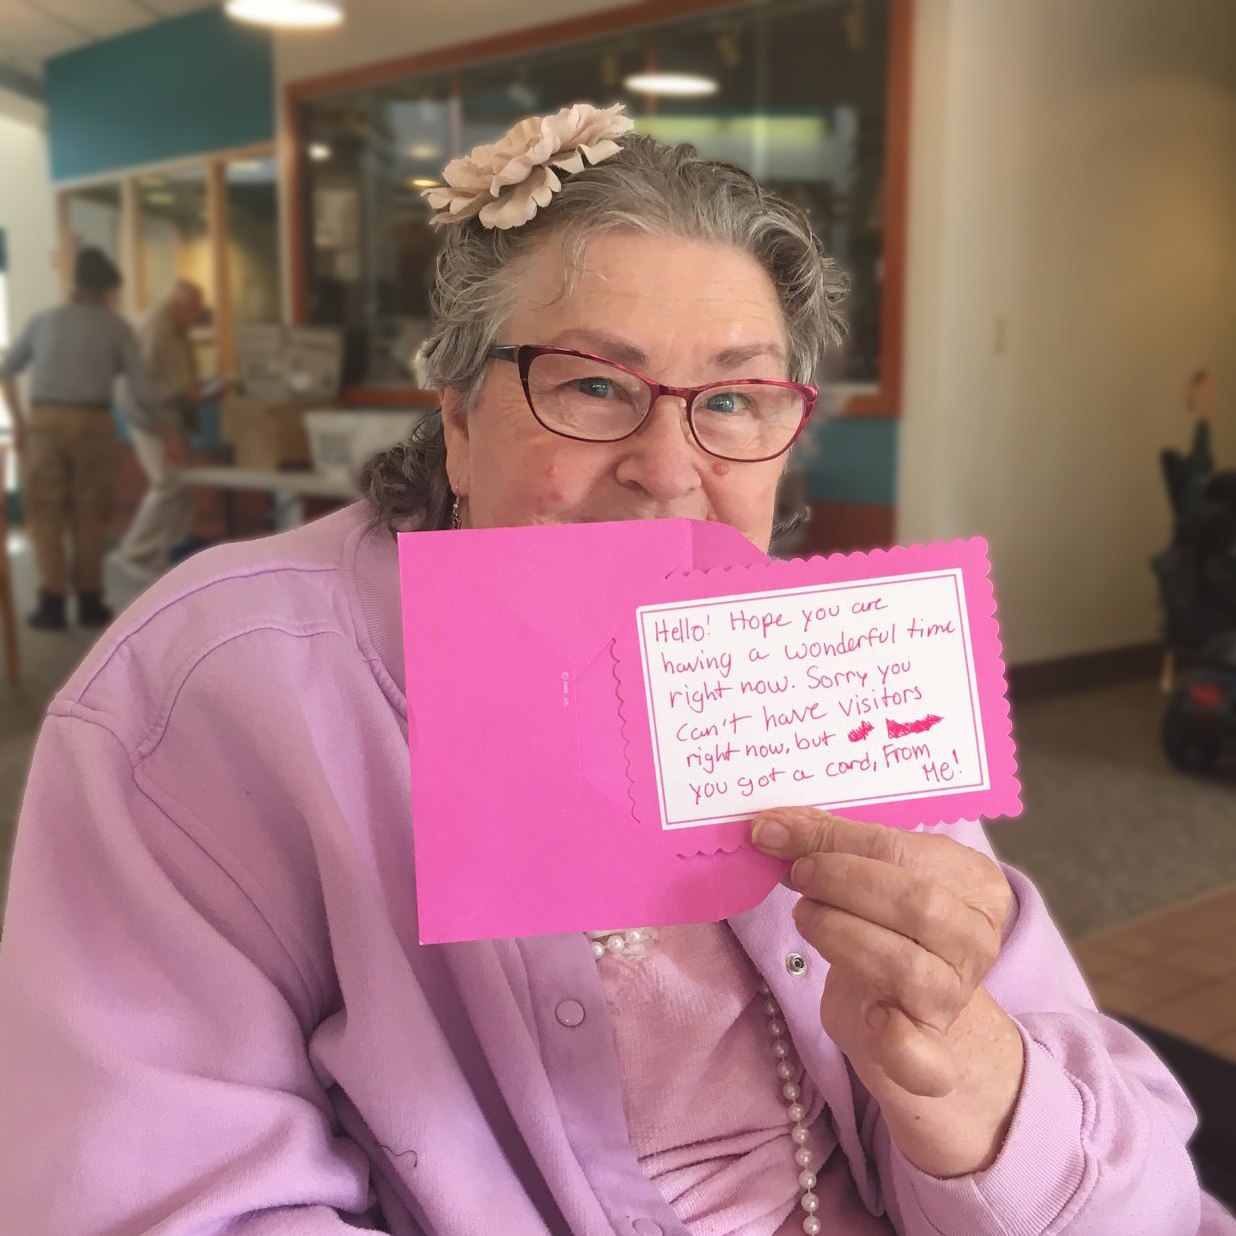 Hello! Hope you are
having a wonderful time
right now. Sorry you
can't have visitors
right now, but
you got a card, From
Me!